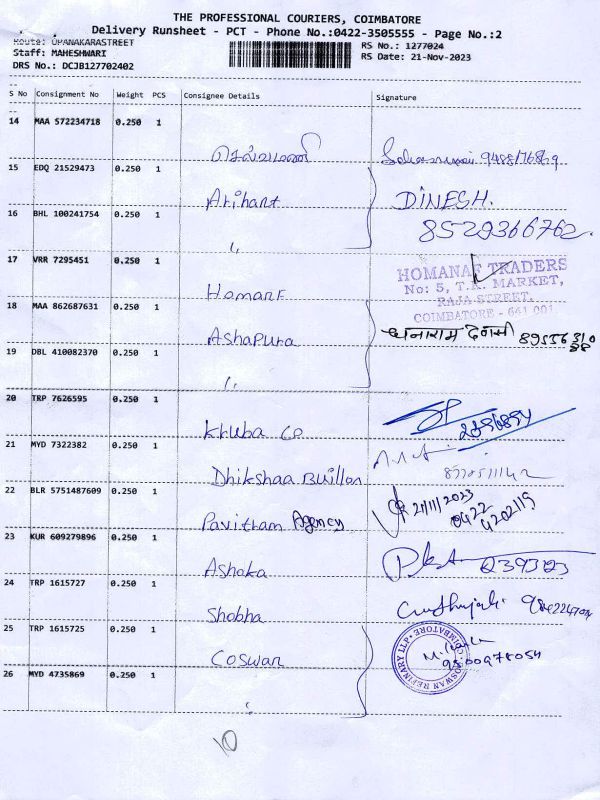 THE PROFESSIONAL COURIERS, COIMBATORE
Delivery Runsheet - PCT - Phone No.:0422-3505555 - Page No.:2
Route: OPANAKARASTREET
RS No.: 1277024
Staff: MAHESHWARI
RS Date: 21-Nov-2023
DRS No.: DCJB127702402
S No Consignment No Weight PCS Consignee Details Signature
14 MAA 572234718 0.250 1
செல்வமணி 9488176869
15 EDQ 21529473 0.250 1
Arihant DINESH.
16 BHL 100241754 0.250 1
8529366762
"
17 VRR 7295451 0.250 1
HOMANF TRADERS
No: 5, T.K. MARKET,
RAJA STREET,
COIMBATORE - 641 001
Homanf
18 MAA 862687631 0.250 1
Ashapura
धनाराम देवासी 89556
19 DBL 410082370 0.250 1
"
20 TRP 7626595 0.250 1
Khuba Co
21 MYD 7322382 0.250 1
Dhikshaa Buillon
22 BLR 5751487609 0.250 1
21/11/2023
0422
Pavitham Agency
4202119
23 KUR 609279896 0.250 1
Ashoka 2393123
24 TRP 1615727 0.250 1
Shobha
25 TRP 1615725 0.250 1
Coswan
COSWAN REFINARY LLP
COIMBATORE
9500978054
26 MYD 4735869 0.250 1
"
10